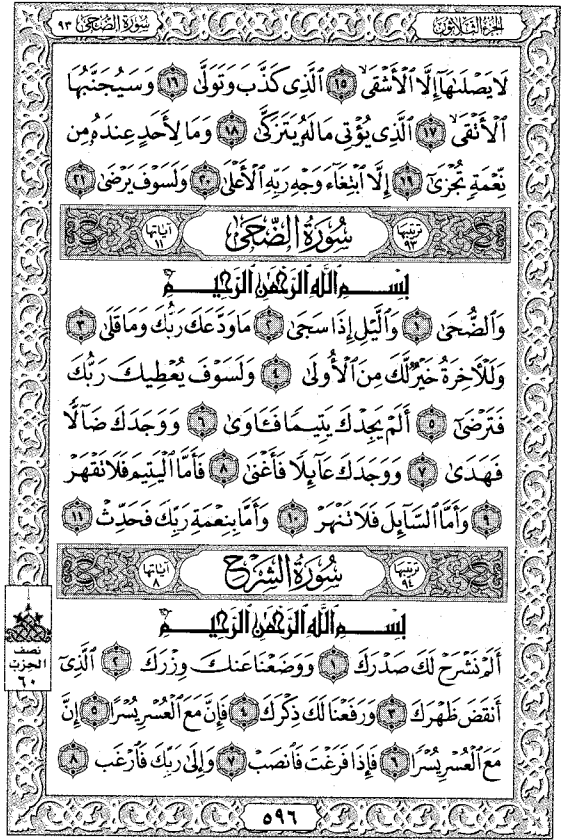 الجزء الثلاثون
سورة الضحى ٩٣
لَا يَصْلَىٰهَآ إِلَّا ٱلْأَشْقَى ١٥ ٱلَّذِى كَذَّبَ وَتَوَلَّىٰ ١٦ وَسَيُجَنَّبُهَا
ٱلْأَتْقَى ١٧ ٱلَّذِى يُؤْتِى مَالَهُۥ يَتَزَكَّىٰ ١٨ وَمَا لِأَحَدٍ عِندَهُۥ مِن
نِّعْمَةٍ تُجْزَىٰٓ ١٩ إِلَّا ٱبْتِغَآءَ وَجْهِ رَبِّهِ ٱلْأَعْلَىٰ ٢٠ وَلَسَوْفَ يَرْضَىٰ ٢١
ترتيبها ٩٣ سُورَةُ الضُّحَىٰ آياتها ١١
بِسْمِ ٱللَّهِ ٱلرَّحْمَٰنِ ٱلرَّحِيمِ
وَٱلضُّحَىٰ ١ وَٱلَّيْلِ إِذَا سَجَىٰ ٢ مَا وَدَّعَكَ رَبُّكَ وَمَا قَلَىٰ ٣
وَلَلْـَٔاخِرَةُ خَيْرٌ لَّكَ مِنَ ٱلْأُولَىٰ ٤ وَلَسَوْفَ يُعْطِيكَ رَبُّكَ
فَتَرْضَىٰٓ ٥ أَلَمْ يَجِدْكَ يَتِيمًا فَـَٔاوَىٰ ٦ وَوَجَدَكَ ضَآلًّا
فَهَدَىٰ ٧ وَوَجَدَكَ عَآئِلًا فَأَغْنَىٰ ٨ فَأَمَّا ٱلْيَتِيمَ فَلَا تَقْهَرْ
٩ وَأَمَّا ٱلسَّآئِلَ فَلَا تَنْهَرْ ١٠ وَأَمَّا بِنِعْمَةِ رَبِّكَ فَحَدِّثْ ١١
ترتيبها ٩٤ سُورَةُ الشَّرْحِ آياتها ٨
بِسْمِ ٱللَّهِ ٱلرَّحْمَٰنِ ٱلرَّحِيمِ
أَلَمْ نَشْرَحْ لَكَ صَدْرَكَ ١ وَوَضَعْنَا عَنكَ وِزْرَكَ ٢ ٱلَّذِىٓ
أَنقَضَ ظَهْرَكَ ٣ وَرَفَعْنَا لَكَ ذِكْرَكَ ٤ فَإِنَّ مَعَ ٱلْعُسْرِ يُسْرًا ٥ إِنَّ
مَعَ ٱلْعُسْرِ يُسْرًا ٦ فَإِذَا فَرَغْتَ فَٱنصَبْ ٧ وَإِلَىٰ رَبِّكَ فَٱرْغَب ٨
نصف
الحزب
٦٠
٥٩٦